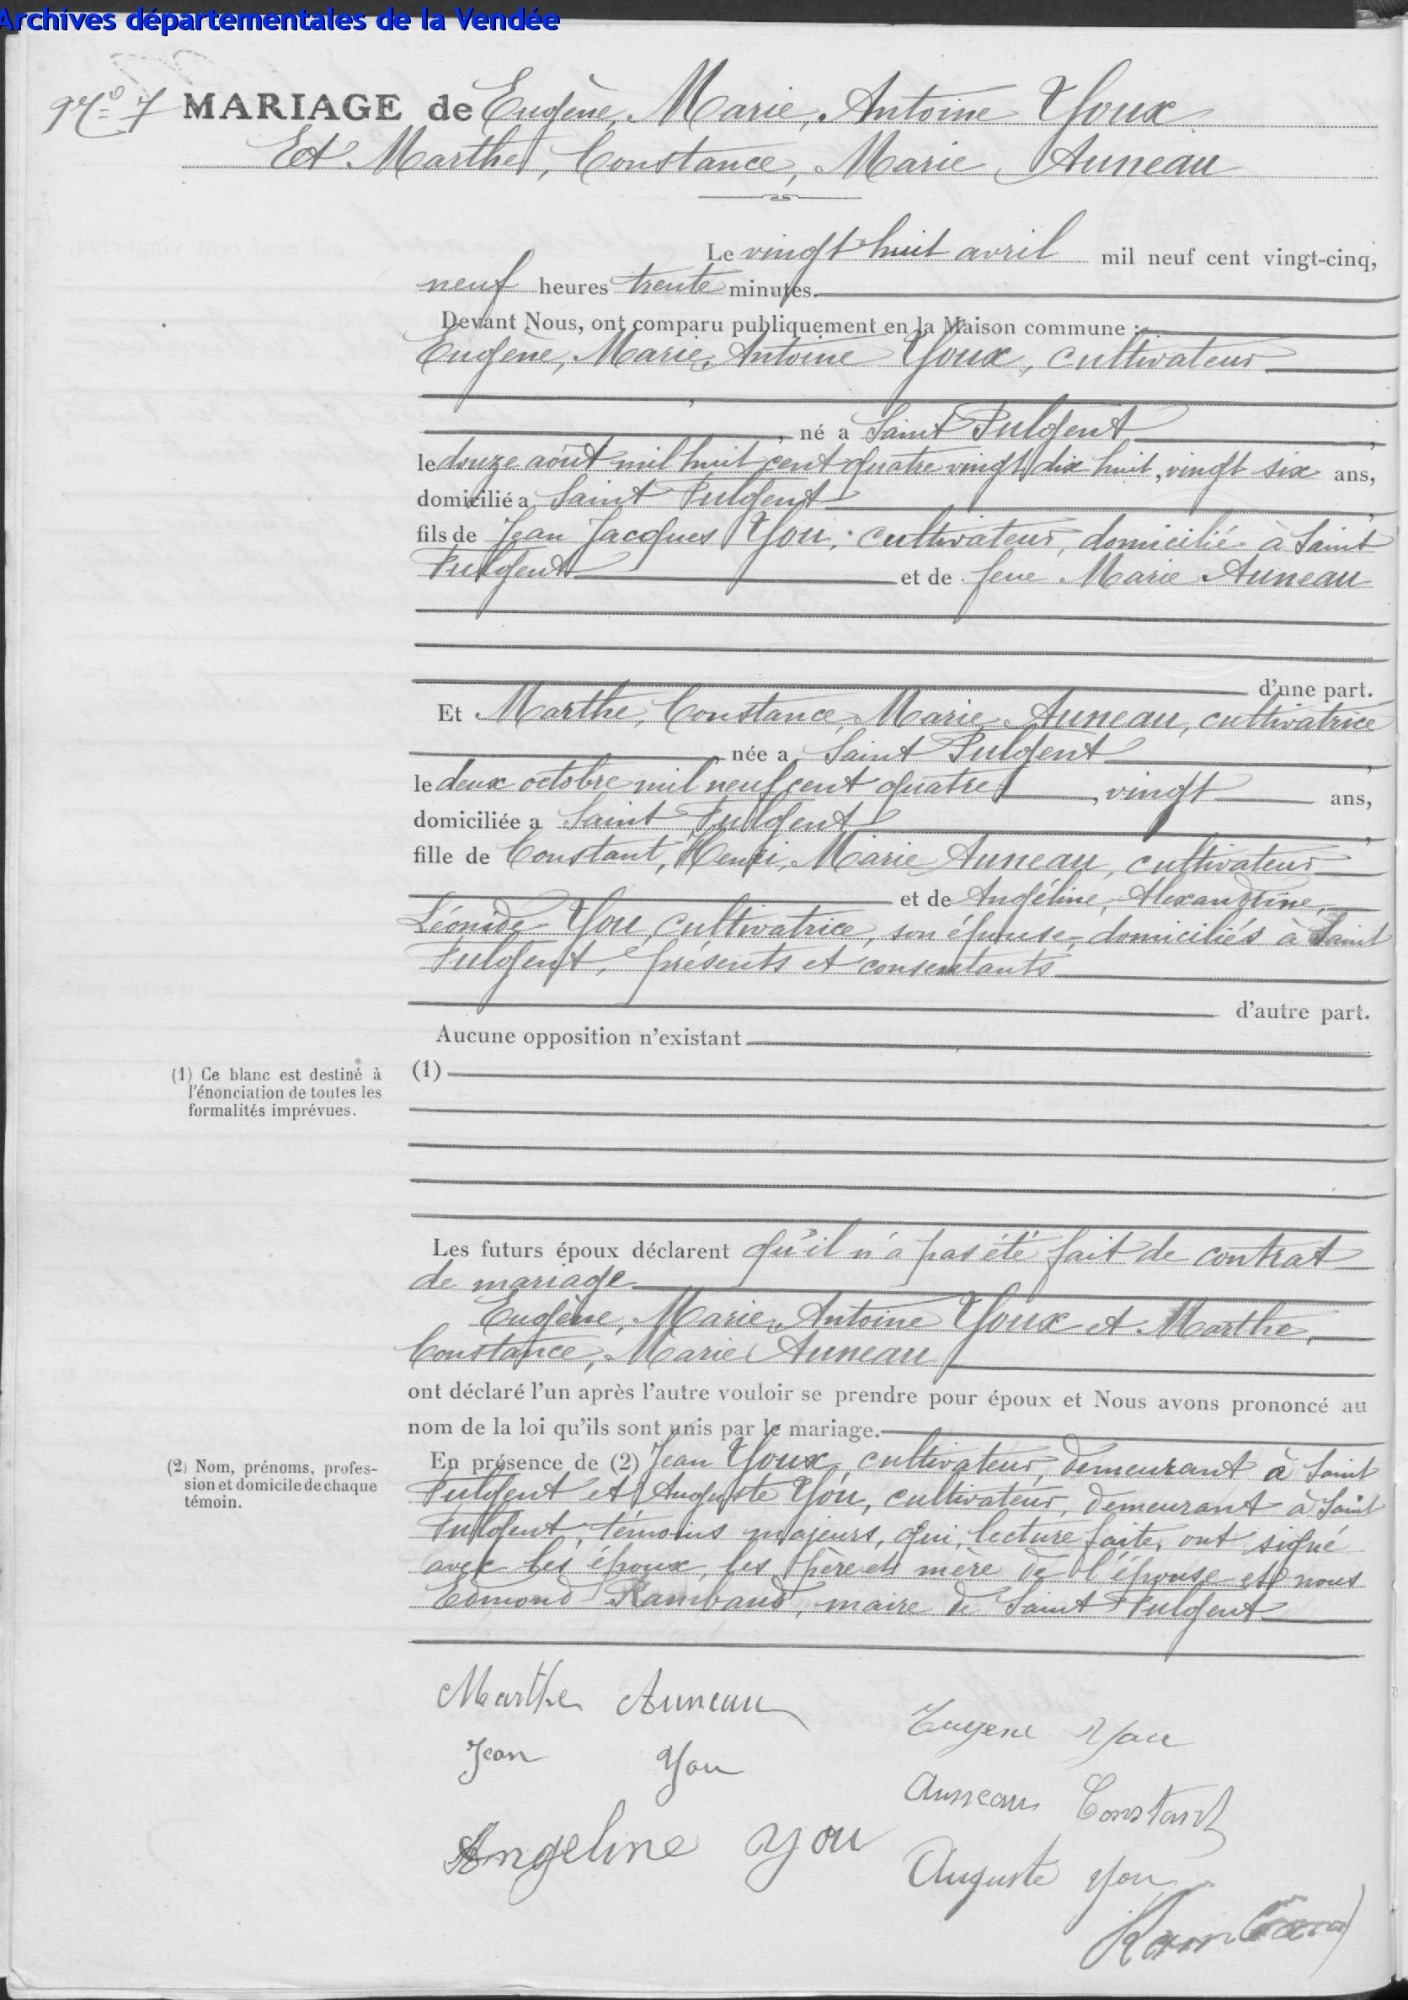 Archives départementales de la Vendée
N° 7 MARIAGE de Eugène, Marie, Antoine Youx
Et Marthe, Constance, Marie Auneau
Le vingt huit avril mil neuf cent vingt-cinq,
neuf heures trente minutes.
Devant Nous, ont comparu publiquement en la Maison commune :
Eugène, Marie, Antoine Youx, cultivateur
, né a Saint Fulgent ,
le douze août mil huit cent quatre vingt dix huit, vingt six ans,
domicilié a Saint Fulgent ,
fils de Jean Jacques You, cultivateur, domicilié à Saint
Fulgent et de feue Marie Auneau
d'une part.
Et Marthe, Constance, Marie Auneau, cultivatrice
, née a Saint Fulgent ,
le deux octobre mil neuf cent quatre , vingt ans,
domiciliée a Saint Fulgent ,
fille de Constant, Henri, Marie Auneau, cultivateur
et de Angéline, Alexandrine,
Léonide You, cultivatrice, son épouse, domiciliés à Saint
Fulgent, présents et consentants
d'autre part.
Aucune opposition n'existant
(1) Ce blanc est destiné à
l'énonciation de toutes les
formalités imprévues.
(1)
Les futurs époux déclarent qu'il n'a pas été fait de contrat
de mariage
Eugène, Marie, Antoine Youx et Marthe,
Constance, Marie Auneau
ont déclaré l'un après l'autre vouloir se prendre pour époux et Nous avons prononcé au
nom de la loi qu'ils sont unis par le mariage.
(2) Nom, prénoms, profes-
sion et domicile de chaque
témoin.
En présence de (2) Jean Youx, cultivateur, demeurant à Saint
Fulgent et Auguste You, cultivateur, demeurant à Saint
Fulgent, témoins majeurs, qui, lecture faite, ont signé
avec les époux, les père et mère de l'épouse et nous
Edmond Rambaud, maire de Saint Fulgent
Marthe Auneau
Eugene You
Jean You
Auneau Constant
Angeline You
Auguste You
Rambaud